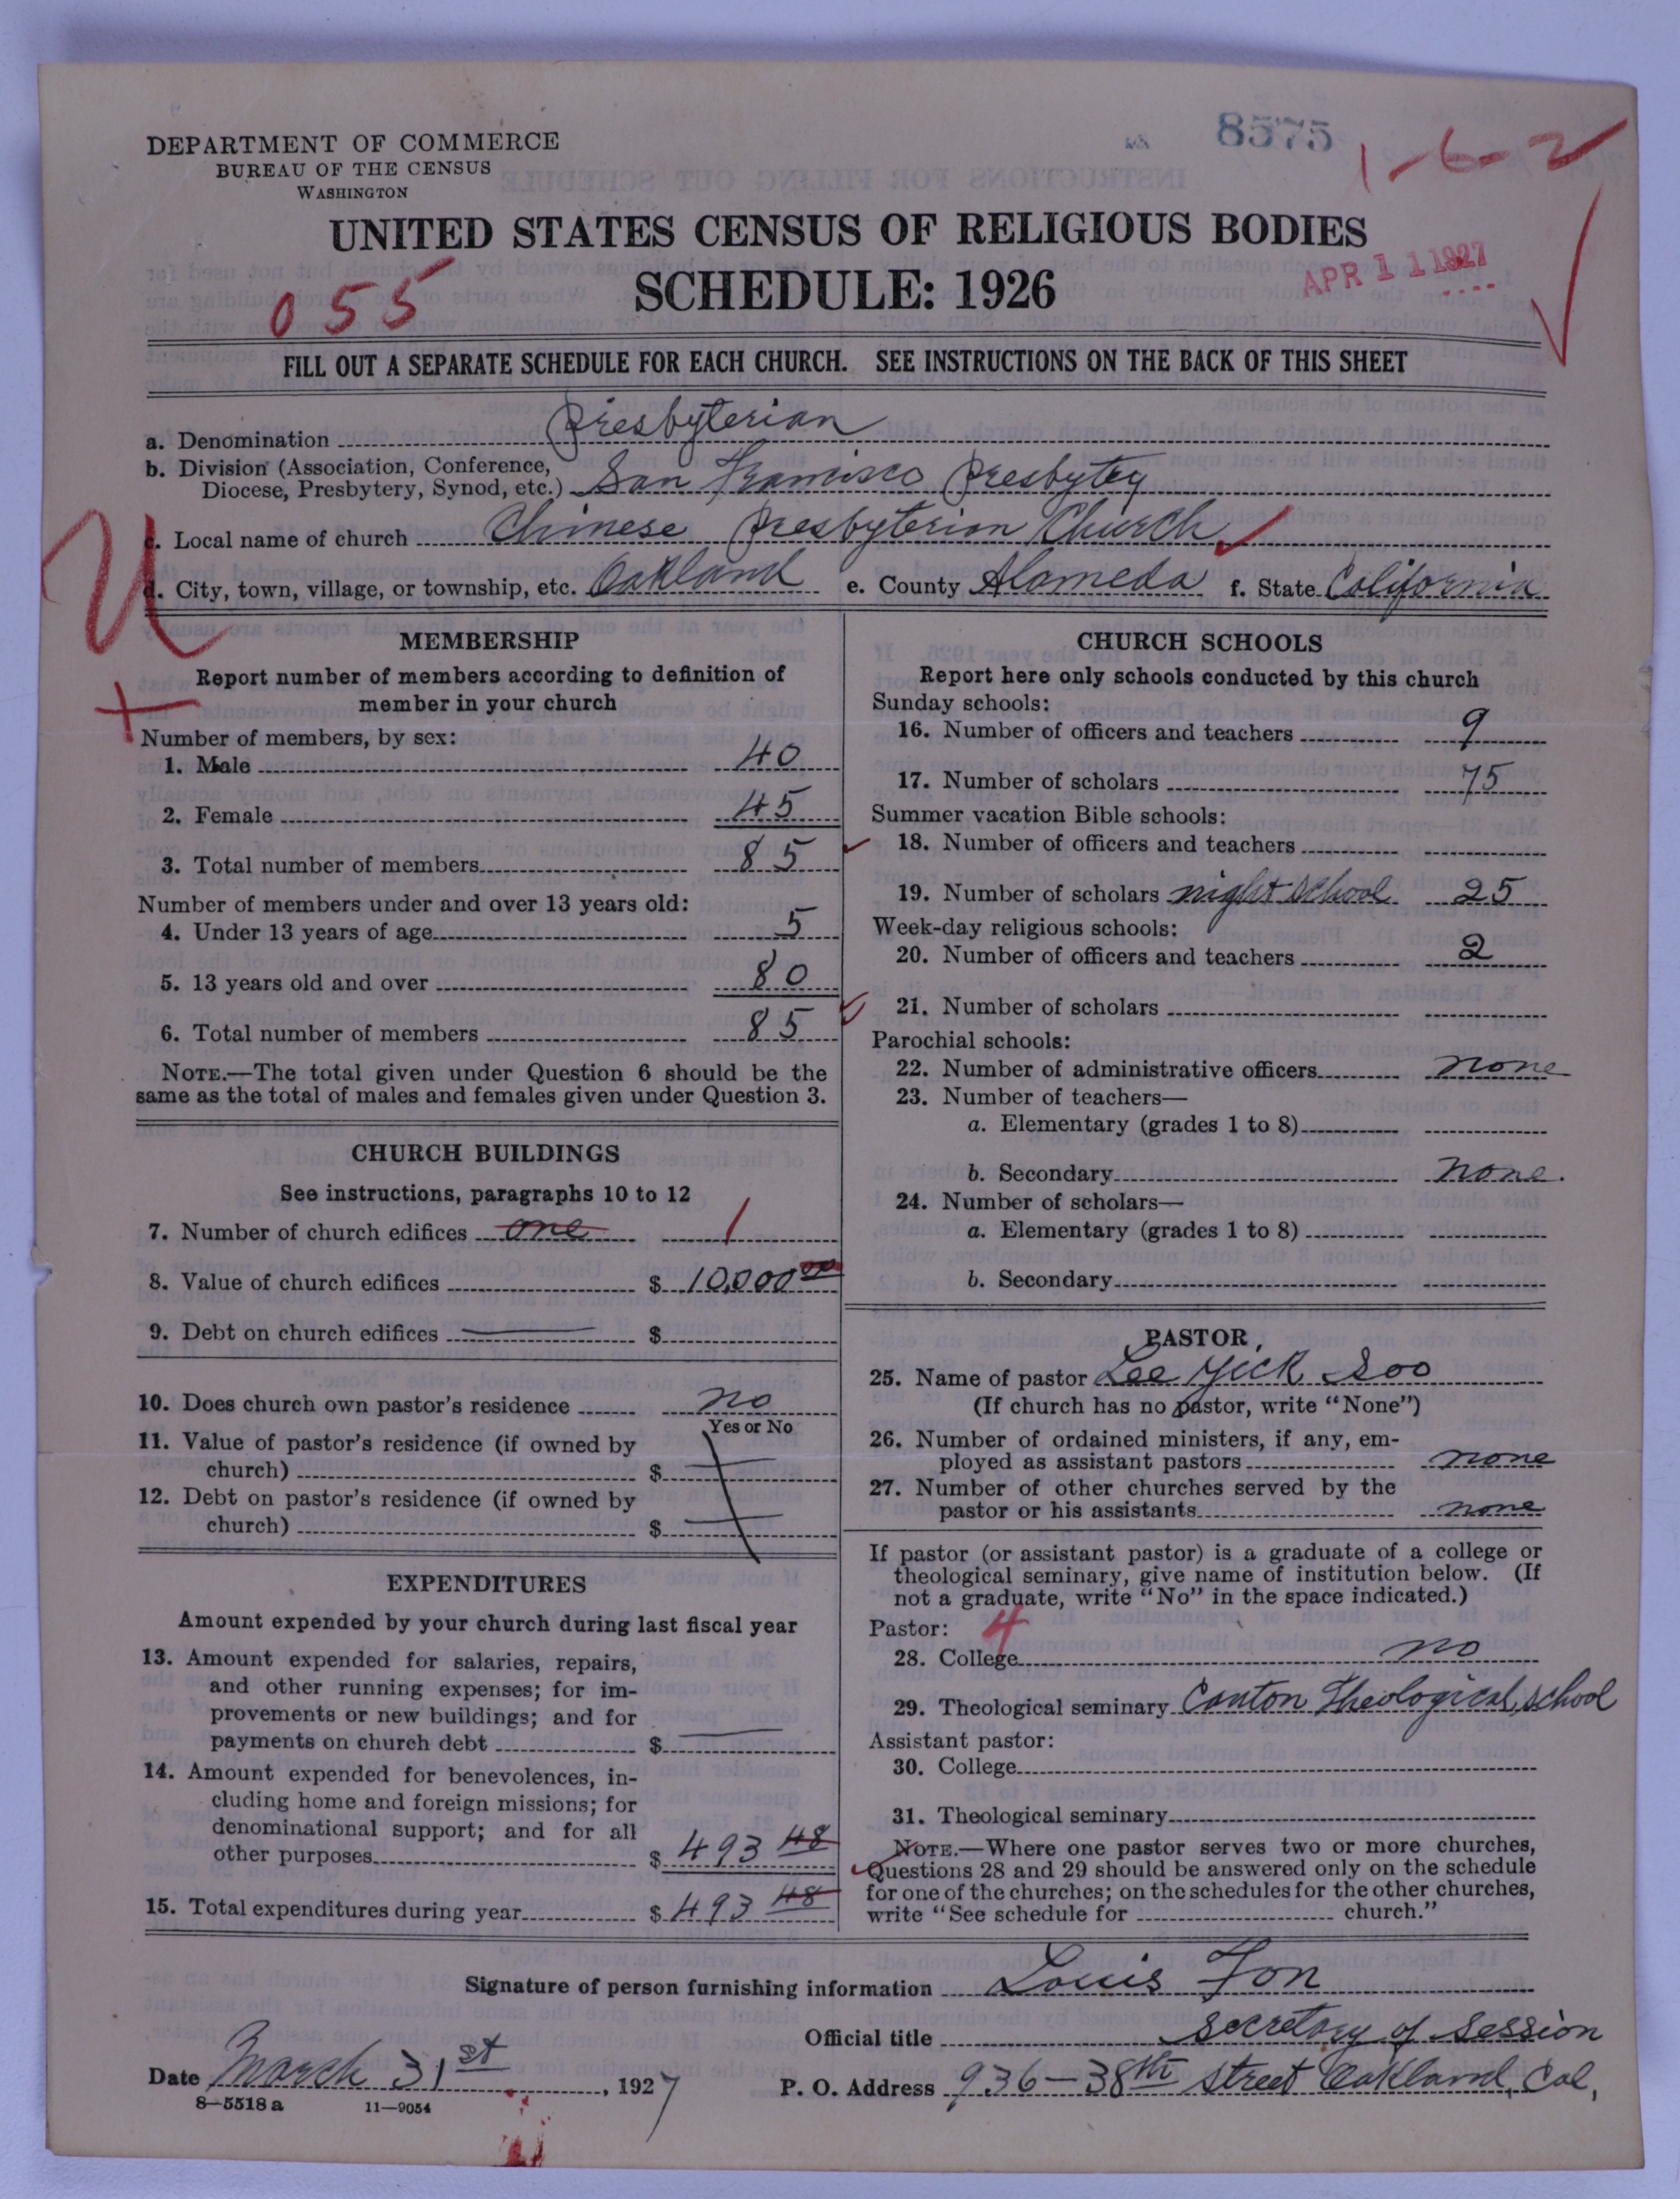 8575
1-6-2
DEPARTMENT OF COMMERCE
BUREAU OF THE CENSUS
WASHINGTON
UNITED STATES CENSUS OF RELIGIOUS BODIES
SCHEDULE: 1926
APR 11 1927
055
FILL OUT A SEPARATE SCHEDULE FOR EACH CHURCH. SEE INSTRUCTIONS ON THE BACK OF THIS SHEET
a. Denomination Presbyterian
b. Division (Association, Conference,
Diocese, Presbytery, Synod, etc.) San Francisco Presbytey
c. Local name of church Chinese Presbyterian Church
d. City, town, village, or township, etc. Oakland e. County Alameda f. State California
MEMBERSHIP
Report number of members according to definition of
member in your church
Number of members, by sex:
1. Male 40
2. Female 45
3. Total number of members 85
Number of members under and over 13 years old:
4. Under 13 years of age 5
5. 13 years old and over 80
6. Total number of members 85
NOTE.—The total given under Question 6 should be the
same as the total of males and females given under Question 3.
CHURCH BUILDINGS
See instructions, paragraphs 10 to 12
7. Number of church edifices one 1
8. Value of church edifices $ 10,000 00
9. Debt on church edifices $
10. Does church own pastor's residence no
Yes or No
11. Value of pastor's residence (if owned by
church) $
12. Debt on pastor's residence (if owned by
church) $
EXPENDITURES
Amount expended by your church during last fiscal year
13. Amount expended for salaries, repairs,
and other running expenses; for im-
provements or new buildings; and for
payments on church debt $
14. Amount expended for benevolences, in-
cluding home and foreign missions; for
denominational support; and for all
other purposes $ 493 48
15. Total expenditures during year $ 493 48
CHURCH SCHOOLS
Report here only schools conducted by this church
Sunday schools:
16. Number of officers and teachers 9
17. Number of scholars 75
Summer vacation Bible schools:
18. Number of officers and teachers
19. Number of scholars night school 25
Week-day religious schools:
20. Number of officers and teachers 2
21. Number of scholars
Parochial schools:
22. Number of administrative officers none
23. Number of teachers—
a. Elementary (grades 1 to 8)
b. Secondary none.
24. Number of scholars—
a. Elementary (grades 1 to 8)
b. Secondary
PASTOR
25. Name of pastor Lee Yick Soo
(If church has no pastor, write "None")
26. Number of ordained ministers, if any, em-
ployed as assistant pastors none
27. Number of other churches served by the
pastor or his assistants none
If pastor (or assistant pastor) is a graduate of a college or
theological seminary, give name of institution below. (If
not a graduate, write "No" in the space indicated.)
Pastor: 4
28. College no
29. Theological seminary Canton Theological School
Assistant pastor:
30. College
31. Theological seminary
NOTE.—Where one pastor serves two or more churches,
Questions 28 and 29 should be answered only on the schedule
for one of the churches; on the schedules for the other churches,
write "See schedule for church."
Signature of person furnishing information Louis Fon
Official title Secretary of Session
Date March 31st, 1927 P. O. Address 936-38th Street Oakland, Cal,
8-5518 a 11-9054